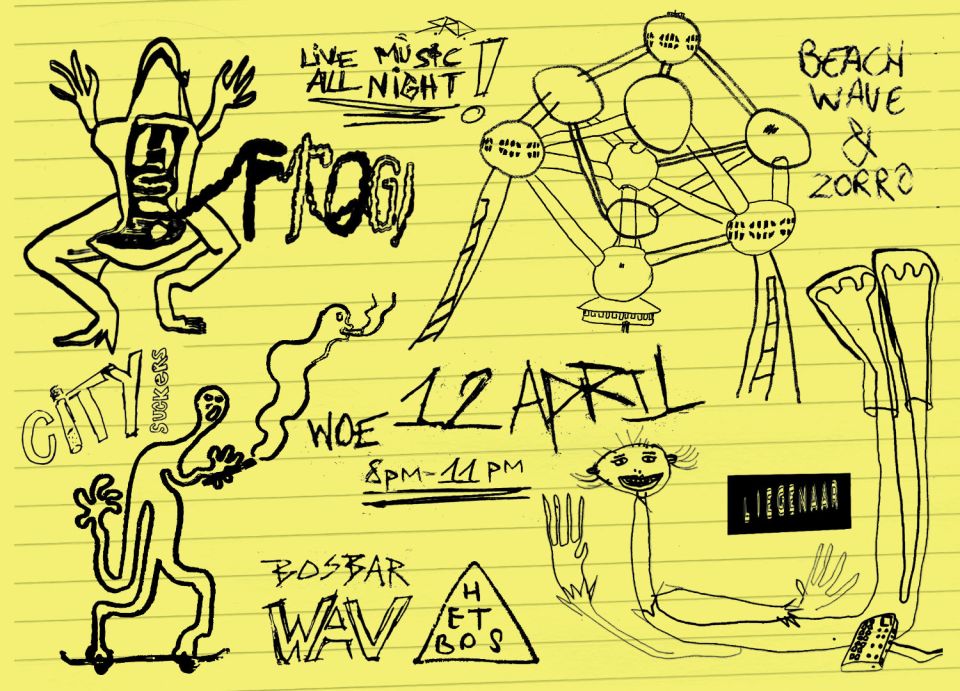 LIVE MUSIC
ALL NIGHT!
BEACH
WAVE
&
ZORRO
FROG
CITY
SUCKERS
WOE 12 APRIL
8PM-11PM
LIEGENAAR
BOSBAR
WAV
H
ET
BOS